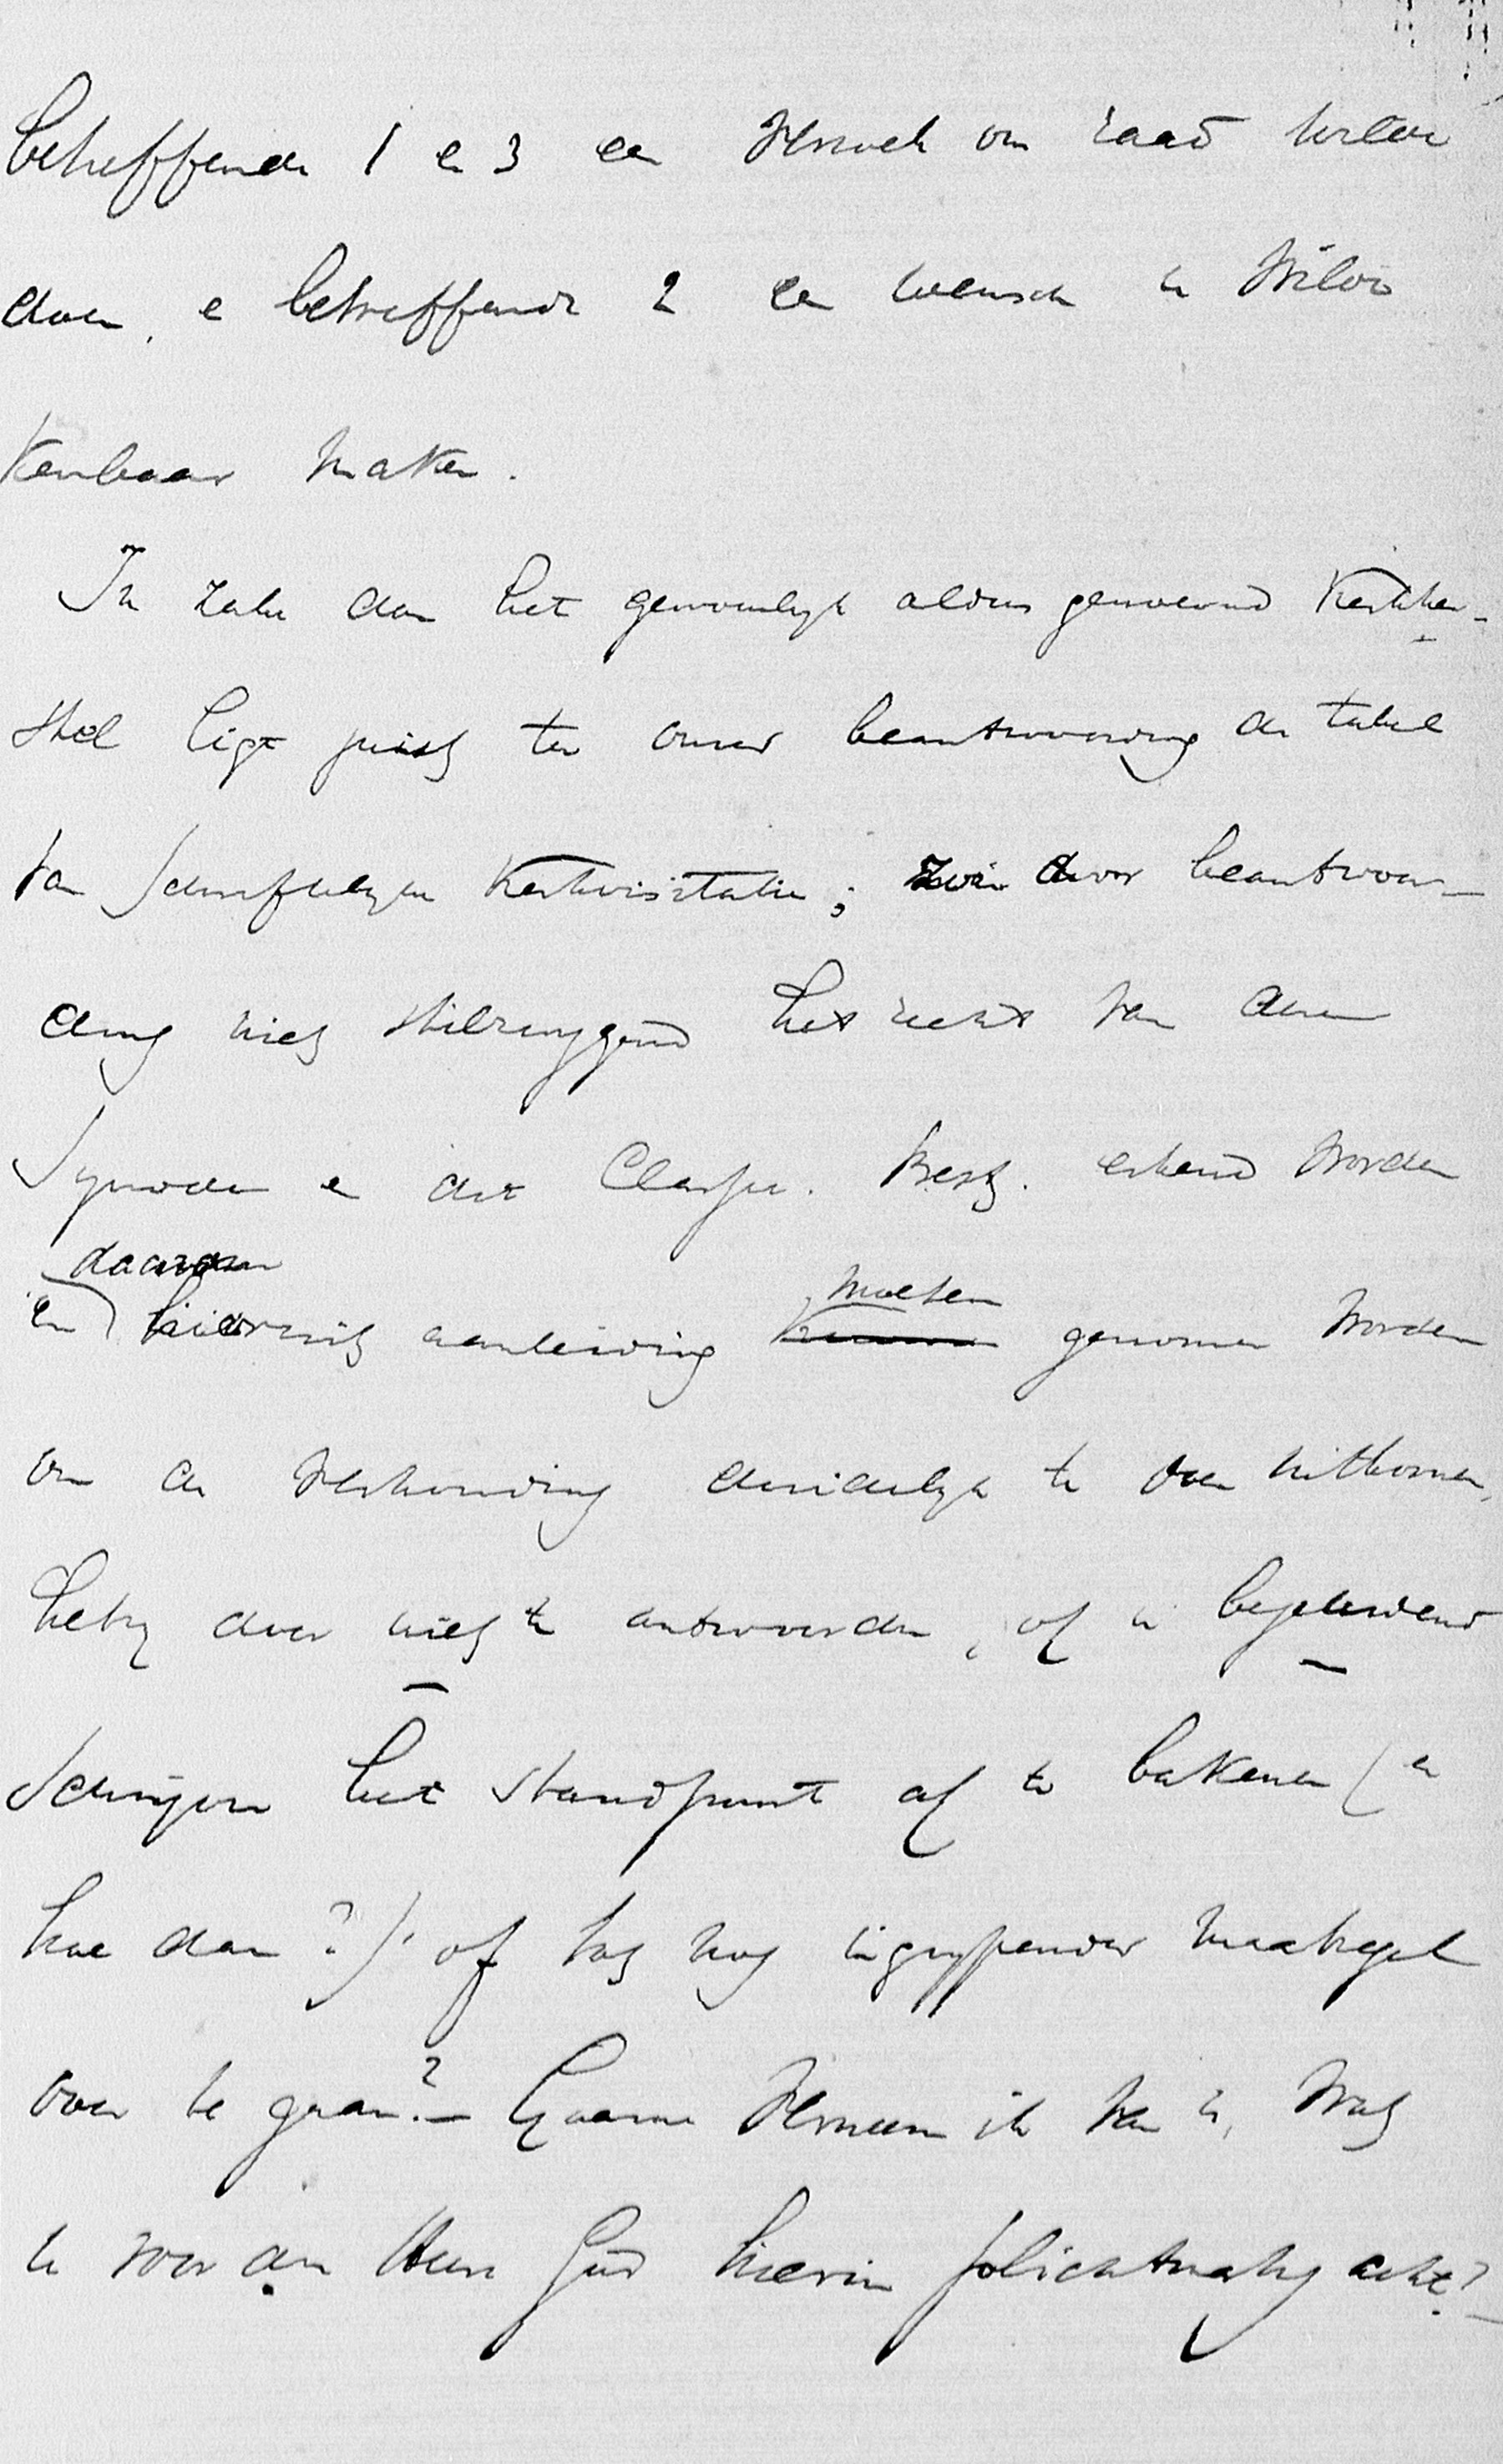 betreffende 1 en 3 een verzoek om raad willen
doen, en betreffende 2 een wensch in
kenbaar maken.
In zake dan het gewoonlijk aldus genoemd Kerkher-
stel ligt juist ter onzer beantwoording de tabel
van Schriftelijke Kerkvisitatie; door beantwoor-
ding niet stilzwijgend het recht van deze
Synode en dit Classic. Best. erkend worden
daarom
en hieruit aanleiding
moeten
genomen worden
om de verhouding duidelijk te doen uitkomen,
hetzij door niet te antwoorden, of in begeleidend
schrijven het standpunt af te bakenen (en
hoe dan?) of tot nog ingrijpender maatregel
over te gaan? — Gaarne verneem ik van U, wat
U voor den Heere God hierin plichtmatig acht? —